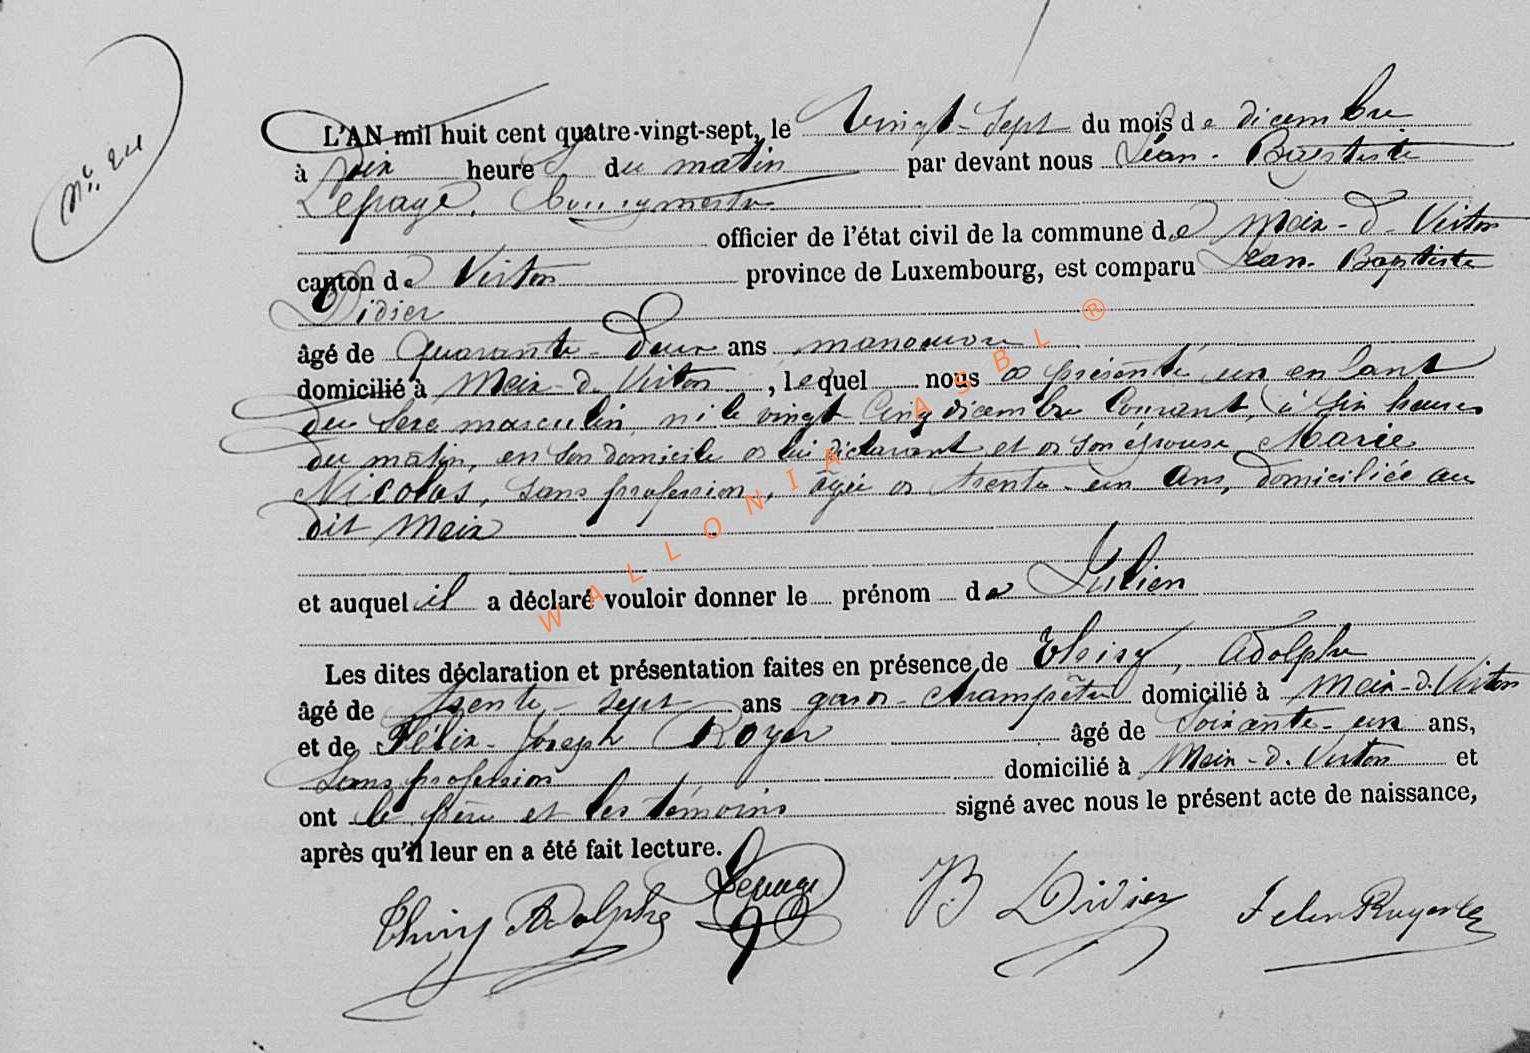 N° 24
L'AN mil huit cent quatre-vingt-sept, le vingt-sept du mois de décembre
à dix heures du matin par devant nous Jean-Baptiste
Lepage, bourgmestre
officier de l'état civil de la commune de Meix-d-Virton
canton de Virton province de Luxembourg, est comparu Jean-Baptiste
Didier
âgé de quarante-deux ans manœuvre
domicilié à Meix-d-Virton, lequel nous a présenté un enfant
du sexe masculin, né le vingt cinq décembre courant, à six heures
du matin, en son domicile de lui déclarant et de son épouse Marie
Nicolas, sans profession, âgée de trente-un ans, domiciliée au
dit Meix
et auquel il a déclaré vouloir donner le prénom de Julien
Les dites déclaration et présentation faites en présence de Thiry, Adolphe
âgé de trente-sept ans garde-champêtre domicilié à Meix-d-Virton
et de Félix-Joseph Royer âgé de soixante-un ans,
sans profession domicilié à Meix-d-Virton et
ont le père et les témoins signé avec nous le présent acte de naissance,
après qu'il leur en a été fait lecture.
Thiry Adolphe Lepage JB Didier Felix Royer
WALLONIA ASBL ®